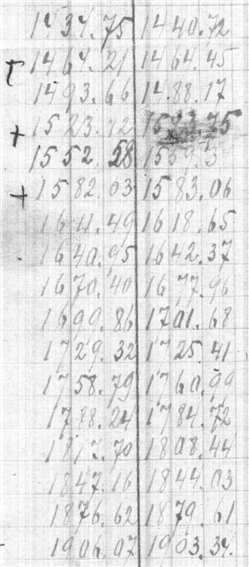 1434.75 1440.72
1464.21 1464.45
1493.66 1488.17
+ 1523.12
1552.58
+ 1582.03 1583.06
1611.49 1618.65
1640.95 1642.37
1670.40 1677.96
1699.86 1701.68
1729.32 1725.41
1758.79 1760.99
1788.24 1784.72
1817.70 1808.44
1847.16 1844.03
1876.62 1879.61
1906.07 1903.34